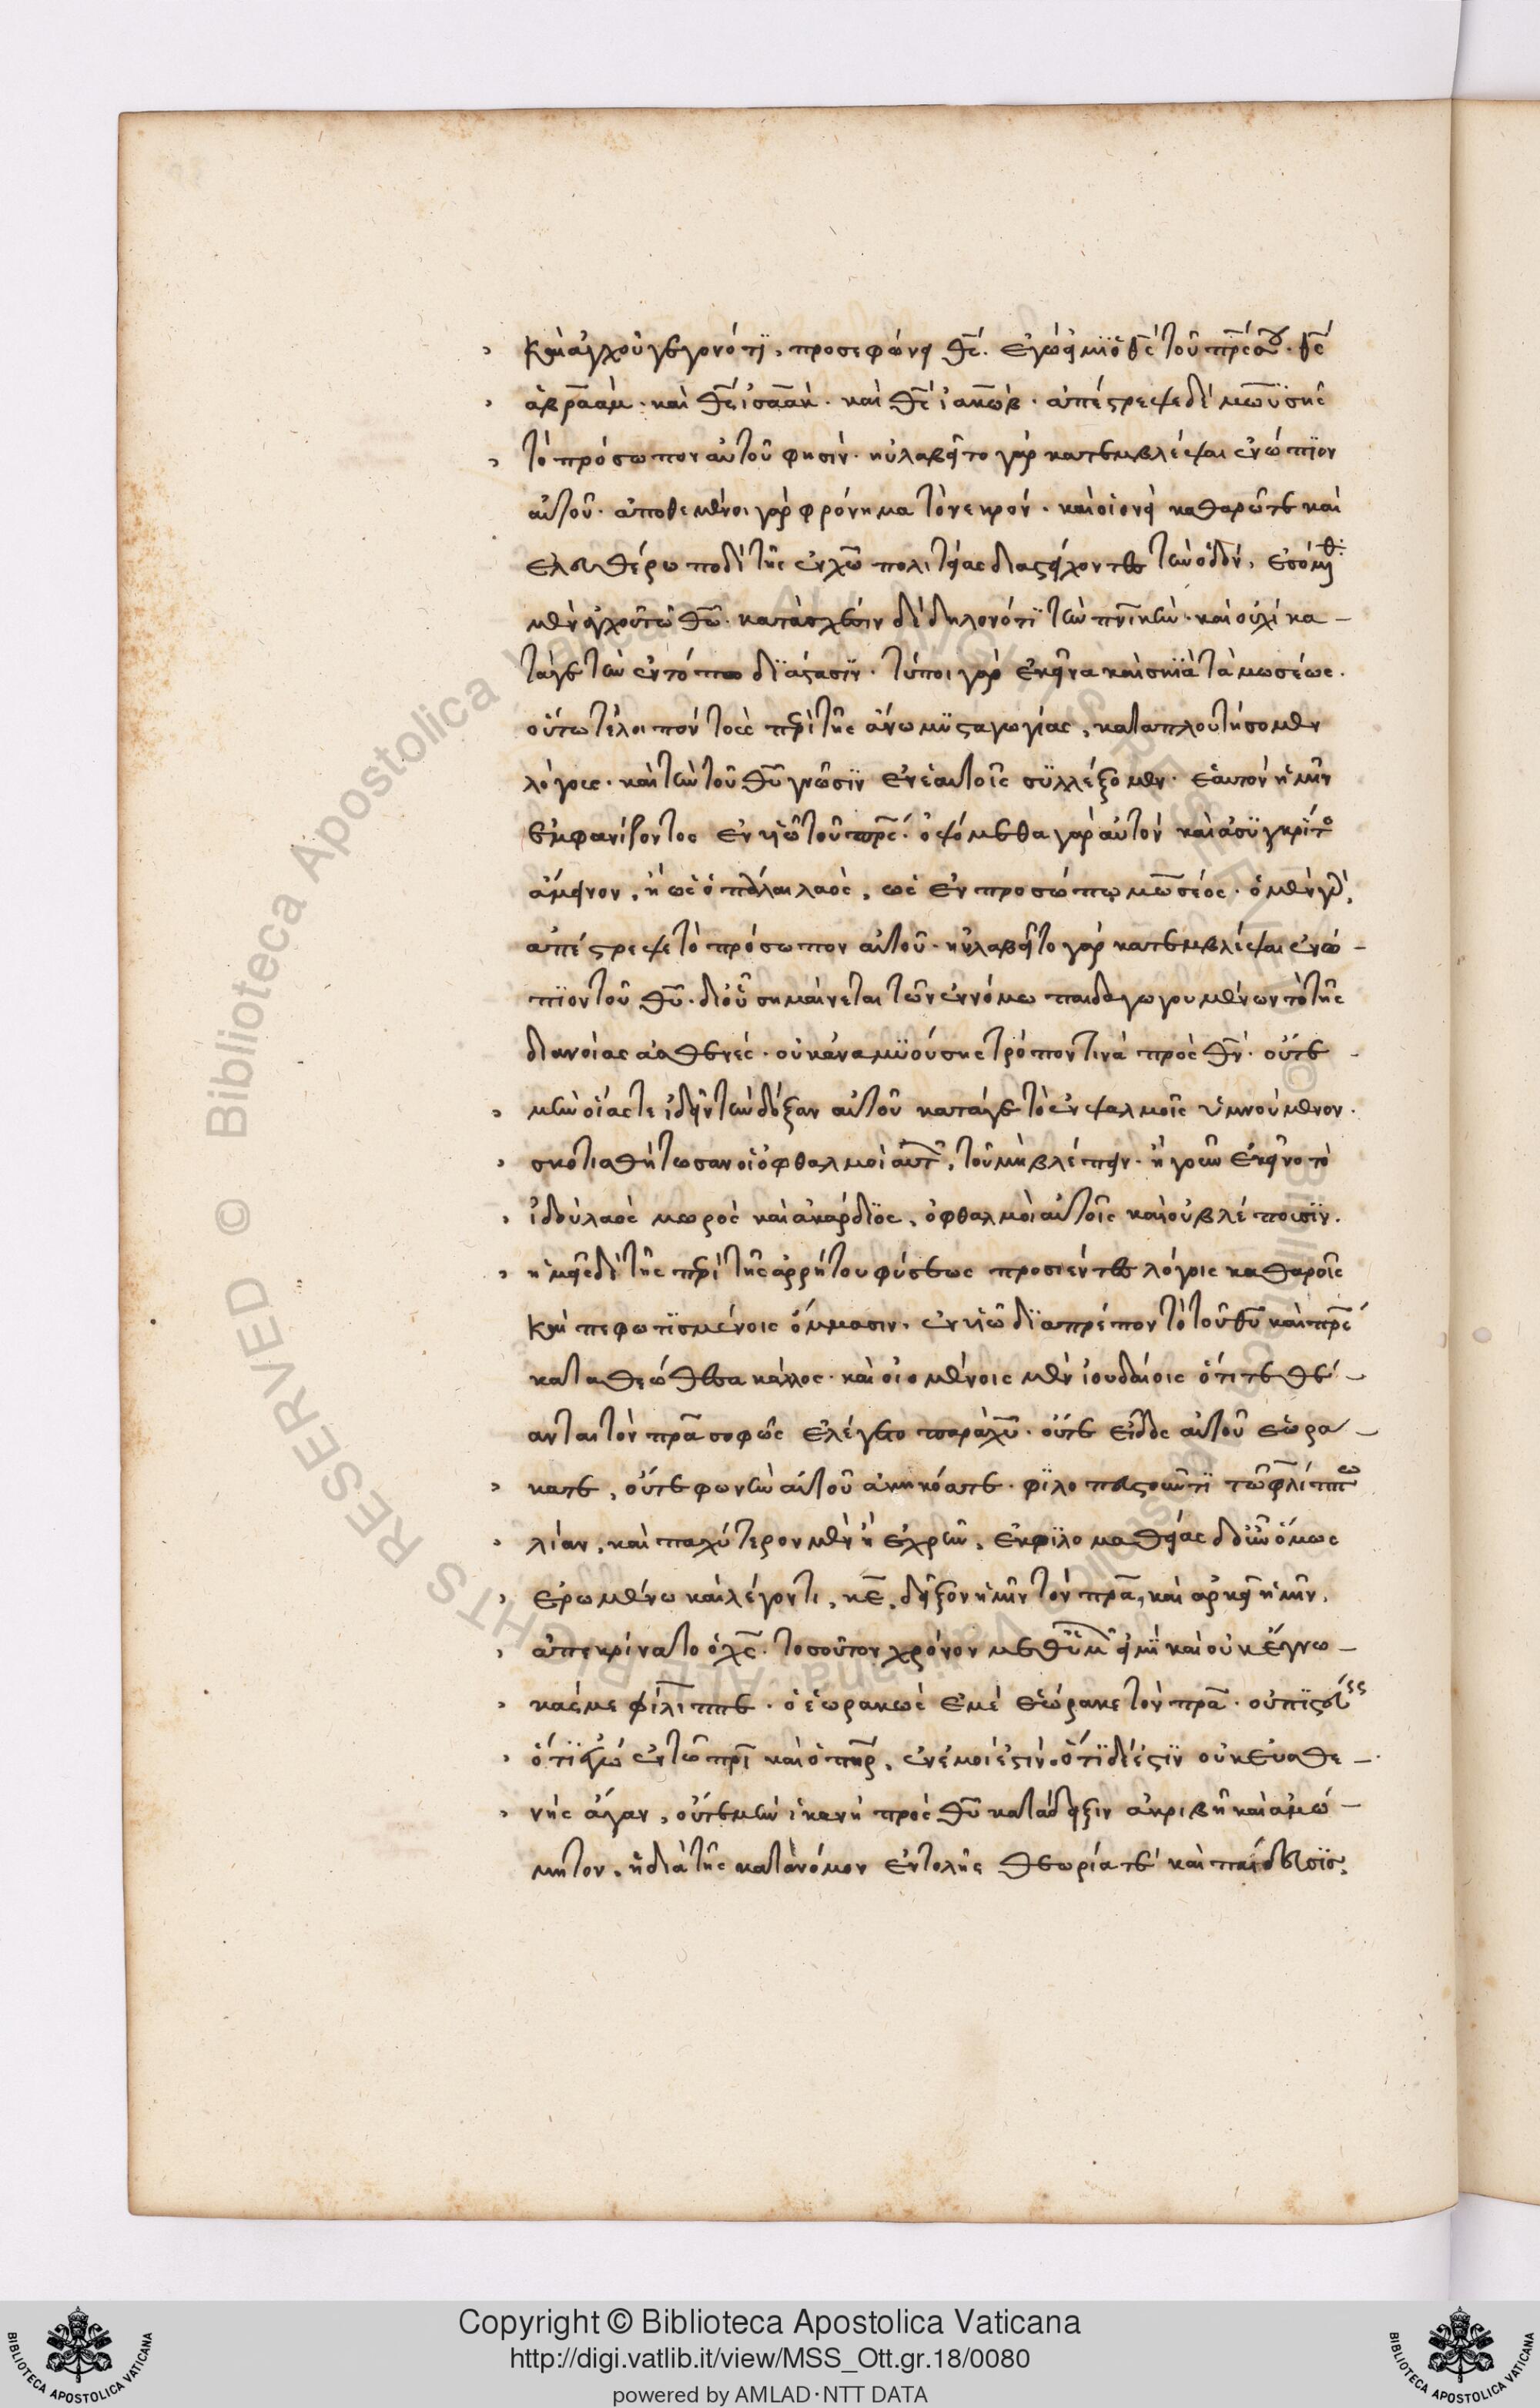 καὶ ἀγχοῦ γεγονότϊ, προσεφώνει θς̅. ἐγώ εἰμϊ ὁ θς̅ τοῦ πρς̅ σου. θς̅
ἀβραὰμ. καὶ θς̅ ἰσαὰκ. καὶ θς̅ ἰακὼβ. ἀπέστρεψε δὲ μωϋσῆς
τὸ πρόσωπον αὐτοῦ φησὶν. ηὐλαβεῖτο γὰρ κατεμβλέψαι ἐνώπϊον
αὐτοῦ. ἀποθεμένοι γὰρ φρόνημα τὸ νεκρόν. καὶ οἱονεὶ καθαρῶτε καὶ
ἐλευθέρω ποδὶ τῆς ἐν χω̅ πολιτείας διαστείχοντες τὴν ὁδόν, ἐσόμεθ
μὲν ἀγχοῦ τῶ θω̅. κατάσχεσιν δὲ δηλονότϊ τὴν πνϊκὴν. καὶ οὐχὶ κα-
τάγε τὴν ἐν τόπω διάστασϊν. τύποι γὰρ ἐκεῖνα καὶ σκιὰ τὰ μωσέως.
οὕτω τέλοιπόν τοὺς περὶ τῆς ἄνω μϋσταγωγίας, καταπλουτήσομεν
λόγους. καὶ τὴν τοῦ θυ̅ γνῶσϊν ἐν ἑαυτοῖς συλλέξομεν. ἑαυτὸν ἡμῖν
ἐμφανίζοντος ἐν υἱῶ τοῦ πρς̅. ὀψόμεθα γὰρ αὐτὸν καὶ ἀσϋγκρίτ
ἄμεινον, ἢ ὡς ὁ πάλαι λαὸς, ὡς ἐν προσώπῳ μωσέος. ὁ μὲν γὰρ,
ἀπέστρεψε τὸ πρόσωπον αὐτοῦ. ηὐλαβεῖτο γὰρ κατεμβλέψαι ἐνώ-
πϊον τοῦ θυ̅. δι οὗ σημαίνεται τῶν ἐν νόμω παιδαγωγουμένων τὸ τῆς
διανοίας ἀσθενές. οὐκ ἀναμϋούσης τρόπον τινὰ πρὸς θν̅. οὔτε
μὴν οἵαστε ἰδεῖν τὴν δόξαν αὐτοῦ κατάγε τὸ ἐν ψαλμοῖς ὑμνούμενον.
σκοτισθήτωσαν οἱ ὀφθαλμοὶ αὐτ, τοῦ μὴ βλέπειν. ἤγουν ἐκεῖνο τὸ
ἰδοὺ λαὸς μωρὸς καὶ ἀκάρδϊος, ὀφθαλμοὶ αὐτοῖς καὶ οὐ βλέπουσϊν.
ἡμεῖς δὲ τῆς περὶ τῆς ἀρρήτου φύσεως προσιέντες λόγοις καθαροῖς
καὶ πεφωτϊσμένοις ὄμμασιν, ἐν υἱῶ δϊαπρέπον τὸ τοῦ θυ̅ καὶ πρς̅
καταθεώθεσα κάλλος. καὶ οἰομένοις μὲν ἰουδαίοις ὅτι τεθέ-
ανται τὸν πρα̅ σοφῶς ἐλέγετο παρὰ χυ̅. οὔτε εἶδος αὐτοῦ ἑωρά-
κατε, οὔτε φωνὴν αὐτοῦ ἀκηκόατε. φϊλοπευστοῦντϊ τῶ φιλίππω
λίαν, καὶ παχύτερον μὲν ἢ ἐχρῆν, ἐκ φϊλομαθείας δ οὖν ὅμως
ἐρωμένω καὶ λέγοντι, κε̅, δεῖξον ἡμῖν τὸν πρα̅, καὶ ἀρκεῖ ἡμῖν,
ἀπεκρίνατο ὁ χς̅. τοσοῦτον χρόνον μεθ ὑμ εἰμὶ καὶ οὐκ ἔγνω-
κας με φίλιππε. ὁ ἑωρακὼς ἐμὲ ἑώρακε τὸν πρα̅. οὐ πϊστεύεις
ὅτϊ ἐγώ ἐν τῶ πρι̅ καὶ ὁ πηρ̅, ἐν ἐμοί ἐστὶν. ὅτϊ δέ ἐστϊν οὐκ εὐσθε-
νὴς ἄγαν, οὔτε μὴν ἱκανὴ πρὸς θυ̅ κατάδειξιν ἀκριβῆ καὶ ἀμώ-
μητον, ἡ διὰ τῆς κατὰ νόμον ἐντολῆς θεωρία τε καὶ παίδευσϊς,
Copyright © Biblioteca Apostolica Vaticana
http://digi.vatlib.it/view/MSS_Ott.gr.18/0080
powered by AMLAD·NTT DATA